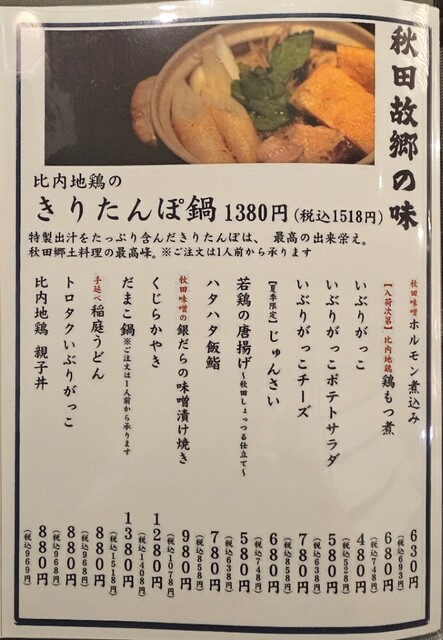 秋田故郷の味
比内地鶏の
きりたんぽ鍋 1380円(税込1518円)
特製出汁をたっぷり含んだきりたんぽは、 最高の出来栄え。
秋田郷土料理の最高峰。※ご注文は1人前から承ります
秋田味噌 ホルモン煮込み 630円(税込693円)
【入荷次第】比内地鶏 鶏もつ煮 680円(税込748円)
いぶりがっこ 480円(税込528円)
いぶりがっこポテトサラダ 580円(税込638円)
いぶりがっこチーズ 780円(税込858円)
【夏季限定】じゅんさい 680円(税込748円)
若鶏の唐揚げ〜秋田しょっつる仕立て〜 580円(税込638円)
ハタハタ飯鮨 780円(税込858円)
秋田味噌の 銀だらの味噌漬け焼き 980円(税込1078円)
くじらかやき 1280円(税込1408円)
だまこ鍋※ご注文は1人前から承ります 1380円(税込1518円)
手延べ 稲庭うどん 880円(税込968円)
トロタクいぶりがっこ 880円(税込968円)
比内地鶏 親子丼 880円(税込969円)